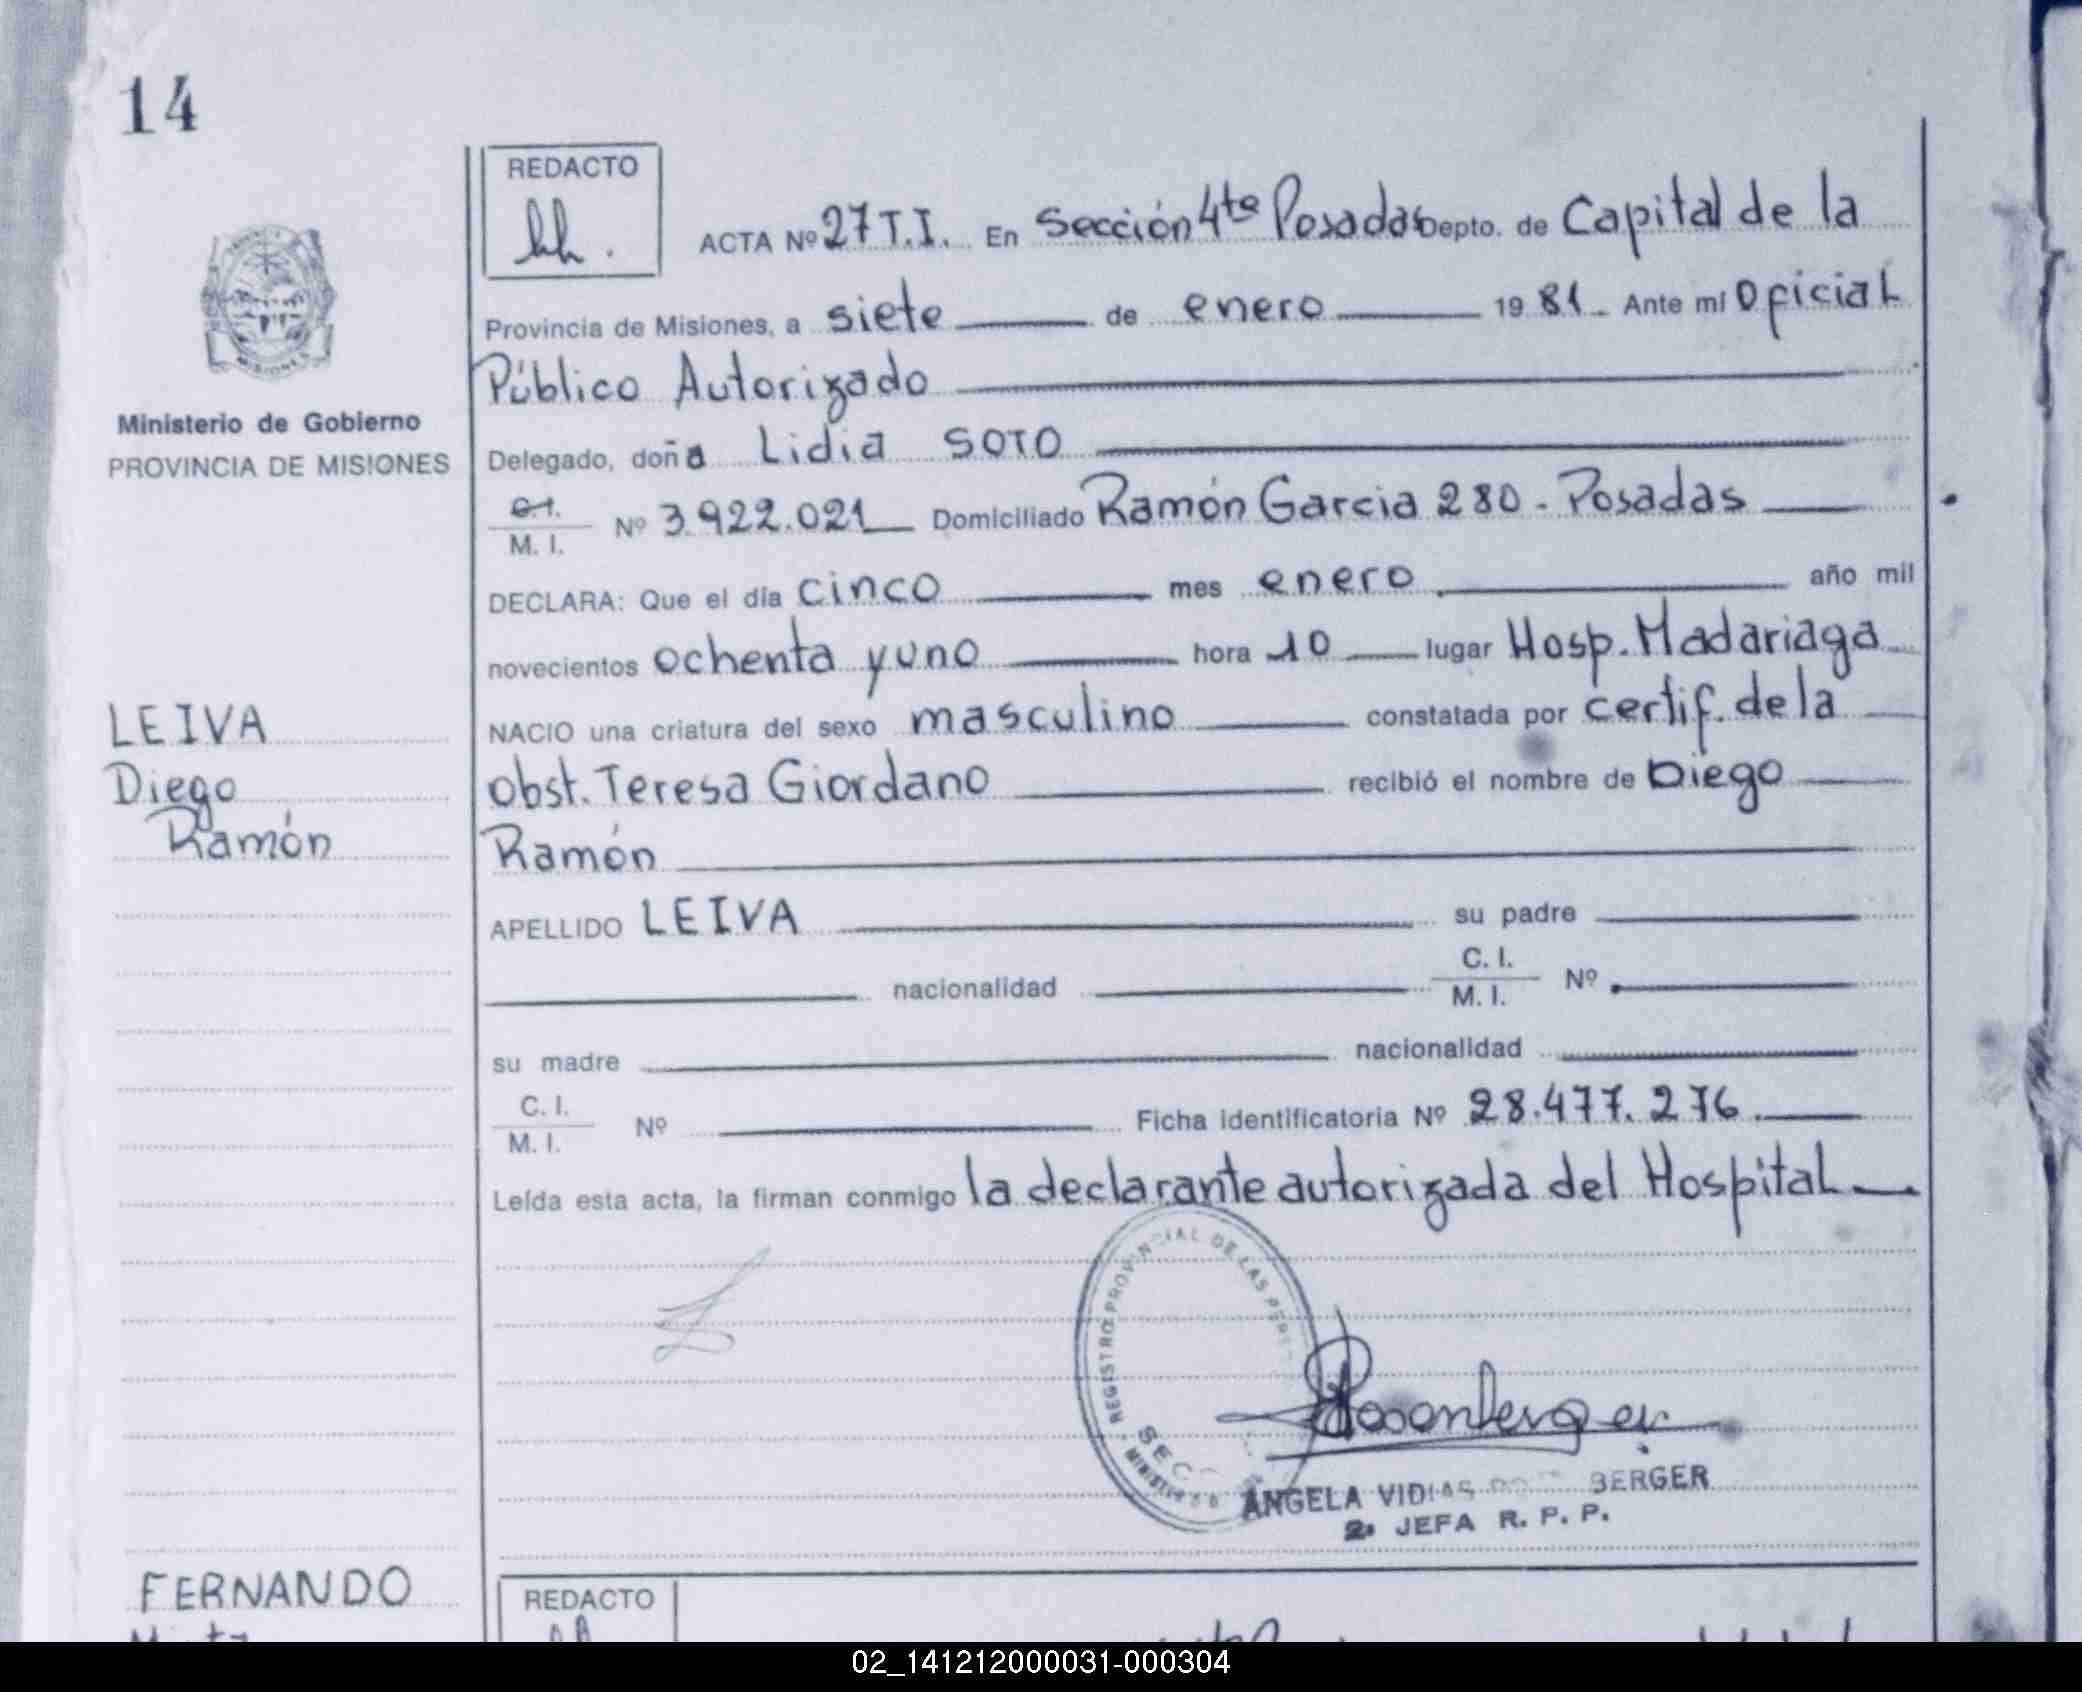 14
REDACTO
ACTA Nº 27 T.I. En Sección 4ta Posadas Depto. de Capital de la
Provincia de Misiones, a siete de enero 1981 Ante mí Oficial
Público Autorizado
MISIONES
Ministerio de Gobierno
PROVINCIA DE MISIONES
Delegado, doña Lidia SOTO
C.I.
M. I. Nº 3.922.021 Domiciliado Ramón Garcia 280 - Posadas
DECLARA: Que el día cinco mes enero año mil
novecientos ochenta y uno hora 10 lugar Hosp. Madariaga
LEIVA
Diego
Ramón
NACIO una criatura del sexo masculino constatada por certif. de la
obst. Teresa Giordano recibió el nombre de Diego
Ramón
APELLIDO LEIVA su padre
nacionalidad C. I.
M. I. Nº
su madre nacionalidad
C. I.
M. I. Nº Ficha identificatoria Nº 28.477.276
Leída esta acta, la firman conmigo la declarante autorizada del Hospital
REGISTRO PROVINCIAL DE LAS
ANGELA VIDIAS BERGER
2ª JEFA R. P. P.
FERNANDO
REDACTO
02_141212000031-000304